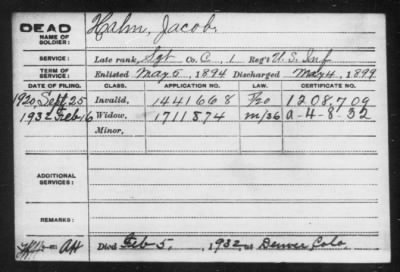 DEAD Hahn, Jacob.
NAME OF SOLDIER:
SERVICE: Late rank, Sgt Co. C, 1 Reg't U.S. Inf
TERM OF SERVICE: Enlisted May 5, 1894 Discharged May 4, 1899
DATE OF FILING. CLASS. APPLICATION NO. LAW. CERTIFICATE NO.
1920, Sept 25 Invalid, 1441668 1208709
1932 Feb 16 Widow, 1711574 a-4-8-32
Minor,
ADDITIONAL SERVICES:
REMARKS:
Died Feb 5, 1932, at Denver, Colo.